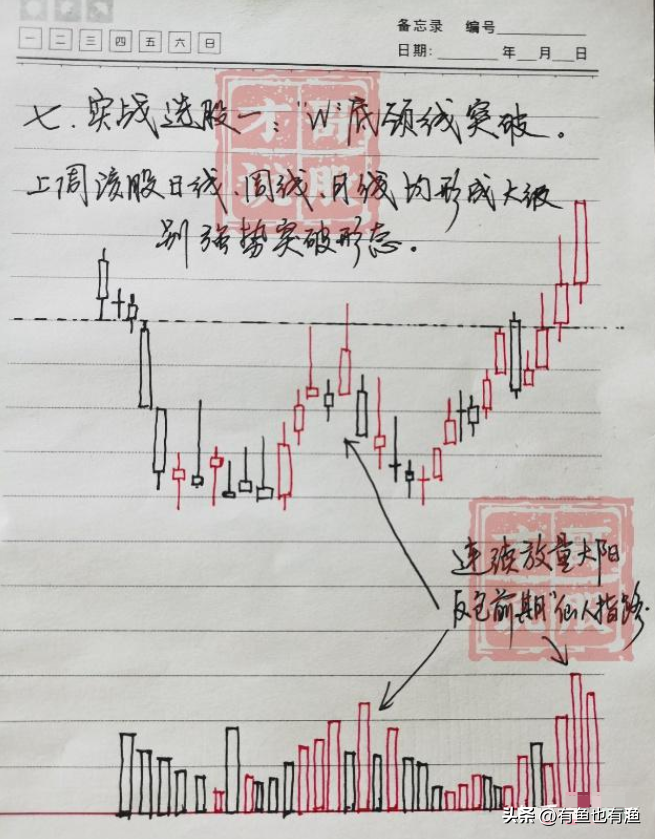 备忘录 编号
一 二 三 四 五 六 日
日期: 年 月 日
七.实战选股一:"W"底颈线突破。
上周该股日线、周线、月线均形成大级
别强势突破形态.
连续放量大阳
反包前期"仙人指路.
头条 @有鱼也有渔